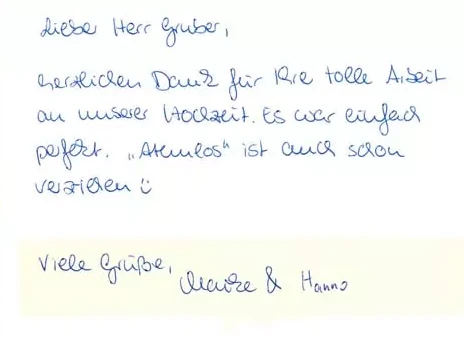 Lieber Herr Gruber,
herzlichen Dank für Ihre tolle Arbeit
an unserer Hochzeit. Es war einfach
perfekt. „Atemlos“ ist auch schon
verziehen ü
Viele Grüße,
Maike & Hanno